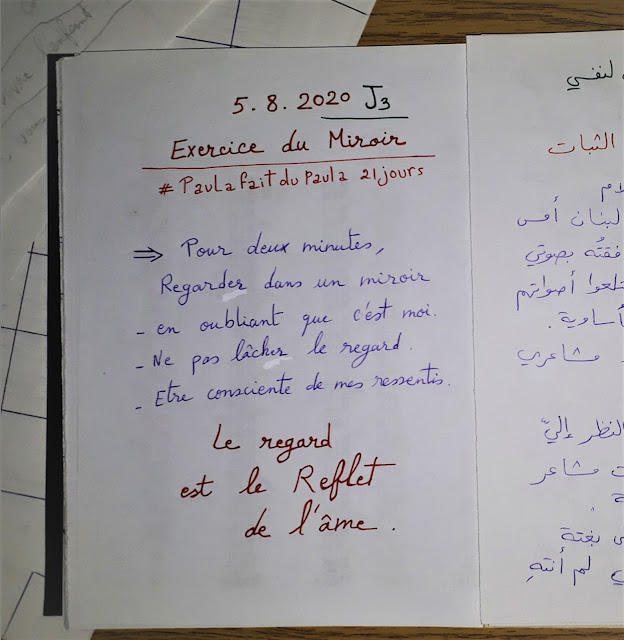 5.8.2020 J3
Exercice du Miroir
# Paula fait du Paula 21 jours
⇒ Pour deux minutes,
Regarder dans un miroir
- en oubliant que c'est moi.
- Ne pas lâcher le regard.
- Etre consciente de mes ressentis.
Le regard
est le Reflet
de l'âme.
لنفسي
الثبات
لبنان أمس
بصوتي
أصواتهم
مشاعري
النظر إليّ
مشاعر
بغتة
لم أنتهِ